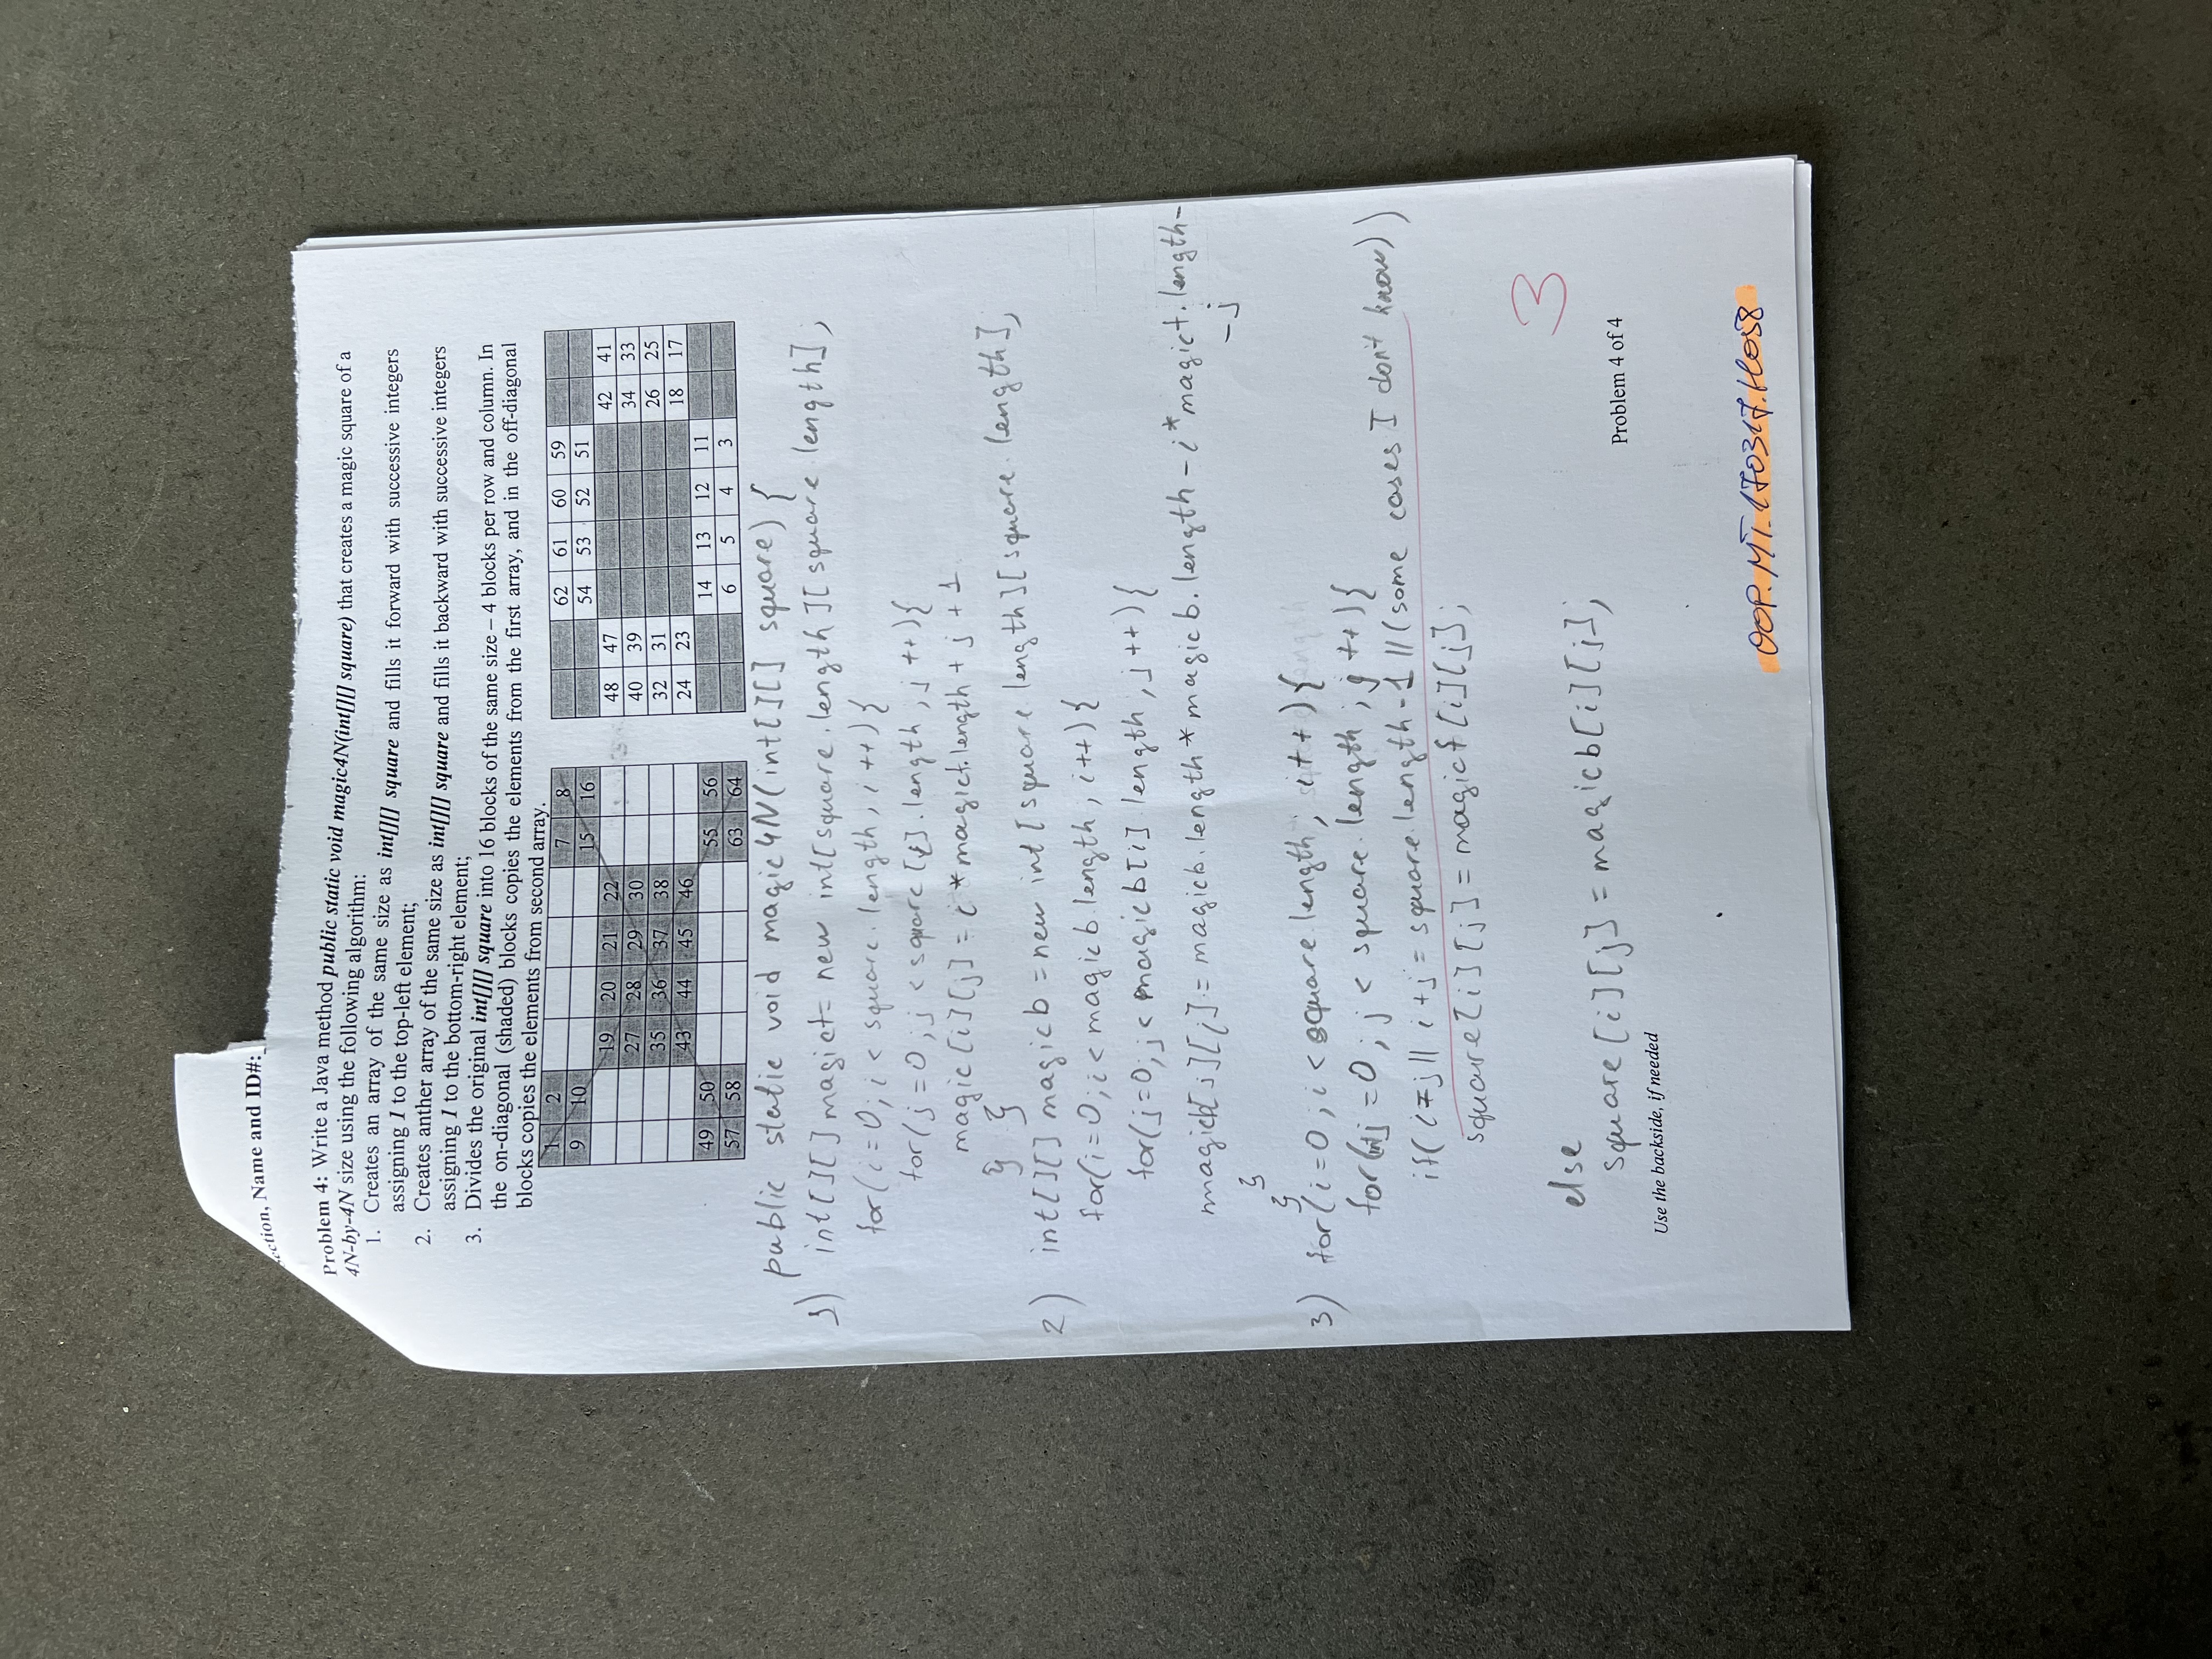 ection, Name and ID#:
Problem 4: Write a Java method public static void magic4N(int[][] square) that creates a magic square of a
4N-by-4N size using the following algorithm:
1. Creates an array of the same size as int[][] square and fills it forward with successive integers
assigning 1 to the top-left element;
2. Creates anther array of the same size as int[][] square and fills it backward with successive integers
assigning 1 to the bottom-right element;
3. Divides the original int[][] square into 16 blocks of the same size – 4 blocks per row and column. In
the on-diagonal (shaded) blocks copies the elements from the first array, and in the off-diagonal
blocks copies the elements from second array.
1 2 7 8 62 61 60 59
9 10 15 16 54 53 52 51
19 20 21 22 48 47 42 41
27 28 29 30 40 39 34 33
35 36 37 38 32 31 26 25
43 44 45 46 24 23 18 17
49 50 55 56 14 13 12 11
57 58 63 64 6 5 4 3
public static void magic4N(int[][] square) {
1) int[][] magict= new int[square.length][square length];
for(i=0; i < square.length, i++){
for(j=0; j < square[i].length, j++){
magic[i][j] = i*magict.length + j + 1
} }
2) int[][] magicb = new int[square length][square.length];
for(i=0; i< magicb.length, i++){
for(j=0; j< magicb[i] length, j++){
magicb[i][j] = magicb.length*magicb.length - i*magict.length-
-j
}
}
3) for(i=0; i < square.length; i++){
for(int j=0; j < square.length; j++){
if( i=j || i+j = square.length-1 || (some cases I don't know))
square[i][j] = magicf[i][j];
3
else
square[i][j] = magicb[i][j];
Problem 4 of 4
Use the backside, if needed
OOP.MT.170317.H058